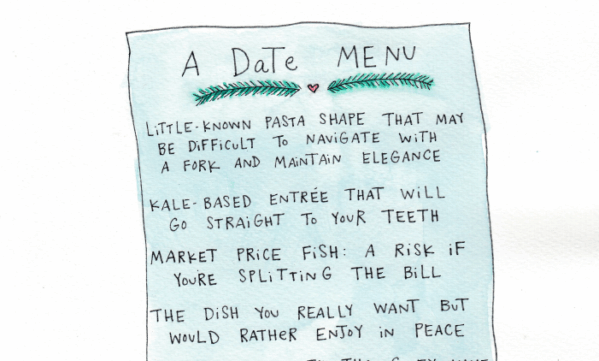 A DaTe MENU
LiTTLE-KNOWN PASTA SHAPE THAT MAY
BE DiFFiCULT TO NAViGATE WiTH
A FORK AND MAiNTAiN ELEGANCE
KALE-BASED ENTRÉE THAT WiLL
GO STRAiGHT TO YOUR TEETH
MARKET PRiCE FiSH: A RiSK iF
YOU'RE SPLiTTiNG THE BiLL
THE DiSH YOU REALLY WANT BUT
WOULD RATHER ENJOY iN PEACE